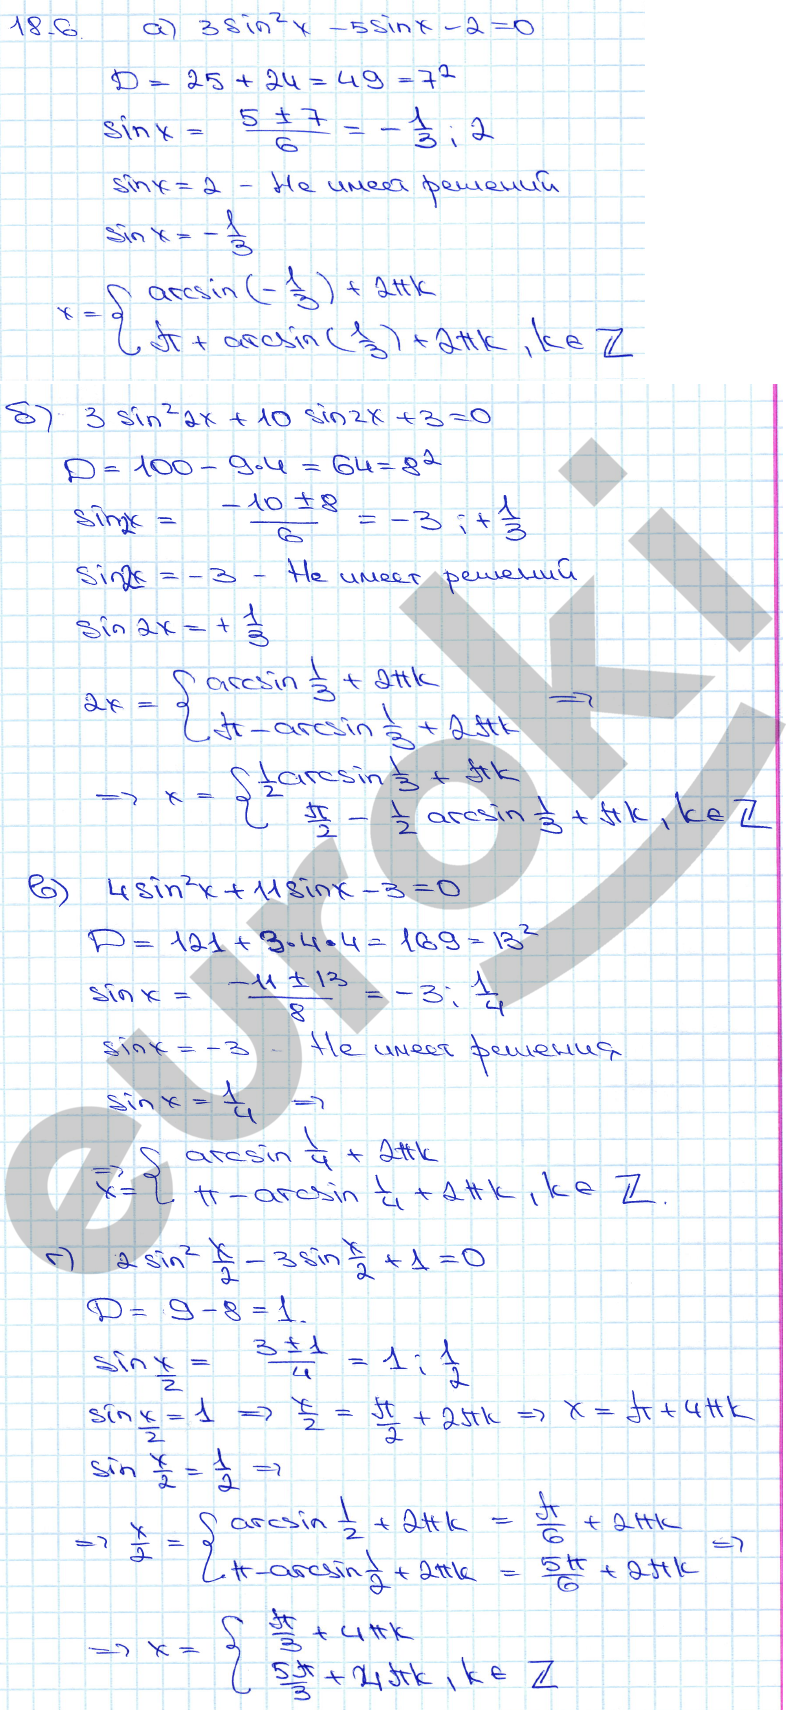 18.6. а) 3sin²x - 5sinx - 2 = 0
D = 25 + 24 = 49 = 7²
sinx = (5 ± 7)/6 = -1/3; 2
sinx = 2 - Не имеет решений
sinx = -1/3
x = { arcsin(-1/3) + 2πk
π + arcsin(1/3) + 2πk, k∈Z
б) 3 sin²2x + 10 sin2x + 3 = 0
D = 100 - 9·4 = 64 = 8²
sin2x = (-10 ± 8)/6 = -3; +1/3
sin2x = -3 - Не имеет решений
sin2x = +1/3
2x = { arcsin 1/3 + 2πk
π - arcsin 1/3 + 2πk =>
=> x = { 1/2 arcsin 1/3 + πk
π/2 - 1/2 arcsin 1/3 + πk, k∈Z
в) 4sin²x + 11sinx - 3 = 0
D = 121 + 3·4·4 = 169 = 13²
sinx = (-11 ± 13)/8 = -3; 1/4
sinx = -3 - Не имеет решения
sinx = 1/4 =>
=> x = { arcsin 1/4 + 2πk
π - arcsin 1/4 + 2πk, k∈Z.
г) 2sin² x/2 - 3sin x/2 + 1 = 0
D = 9 - 8 = 1.
sin x/2 = (3 ± 1)/4 = 1; 1/2
sin x/2 = 1 => x/2 = π/2 + 2πk => x = π + 4πk
sin x/2 = 1/2 =>
=> x/2 = { arcsin 1/2 + 2πk = π/6 + 2πk
π - arcsin 1/2 + 2πk = 5π/6 + 2πk =>
=> x = { π/3 + 4πk
5π/3 + 4πk, k∈Z
euroki